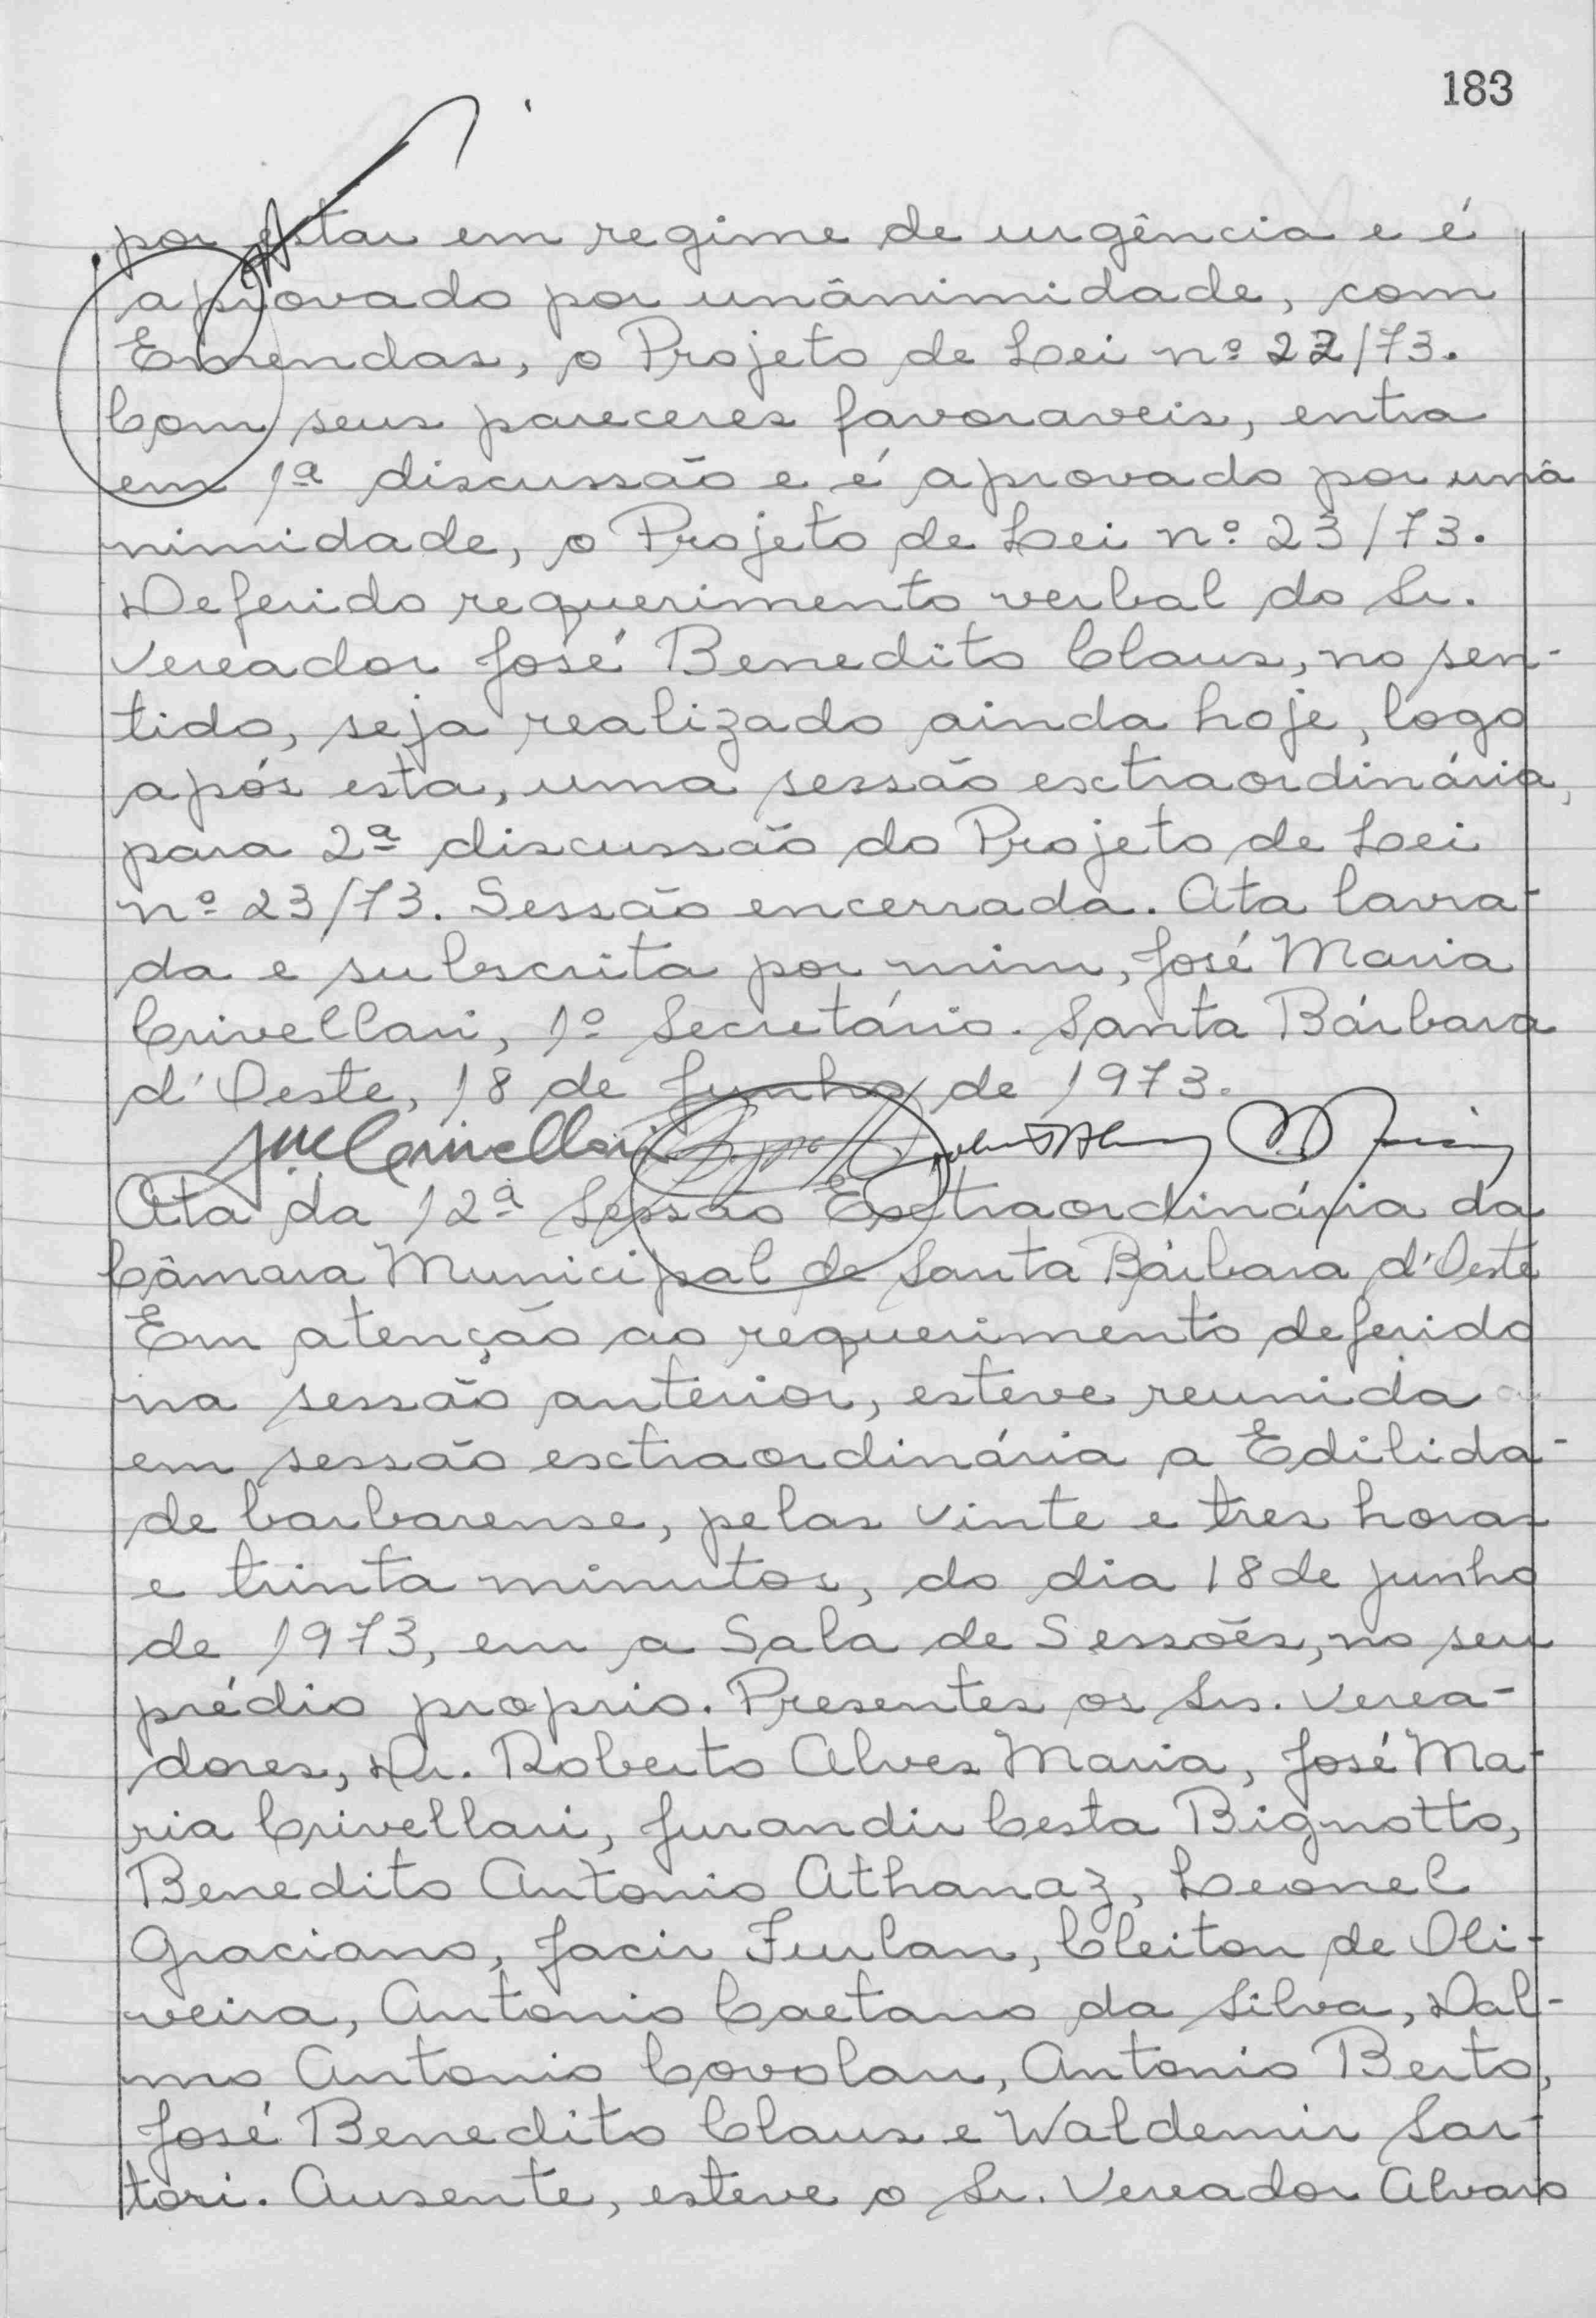 183
por estar em regime de urgência e é
aprovado por unânimidade, com
Emendas, o Projeto de Lei nº 22/73.
Com seus pareceres favoraveis, entra
em 1ª discussão e é aprovado por unâ
nimidade, o Projeto de Lei nº 23/73.
Deferido requerimento verbal do Sr.
Vereador José Benedito Claus, no sen-
tido, seja realizado ainda hoje, logo
após esta, uma sessão extraordinária,
para 2ª discussão do Projeto de Lei
nº 23/73. Sessão encerrada. Ata lavra-
da e subscrita por mim, José Maria
Crivellari, 1º Secretário. Santa Bárbara
d'Oeste, 18 de Junho de 1973.
Crivellari
Ata da 12ª Sessão Extraordinária da
Câmara Municipal de Santa Bárbara d'Oeste
Em atenção ao requerimento deferido
na sessão anterior, esteve reunida
em sessão extraordinária a Edilida-
de barbarense, pelas vinte e tres horas
e trinta minutos, do dia 18 de junho
de 1973, em a Sala de Sessões, no seu
prédio proprio. Presentes os Srs. Verea-
dores, Dr. Roberto Alves Maria, José Ma-
ria Crivellari, Jurandir Cesta Bignotto,
Benedito Antonio Athanaz, Leonel
Graciano, Jacir Furlan, Cleiton de Oli-
veira, Antonio Caetano da Silva, Dal-
mo Antonio Covolan, Antonio Berto,
José Benedito Claus e Waldemir Sar-
tori. Ausente, esteve o Sr. Vereador Alvaro